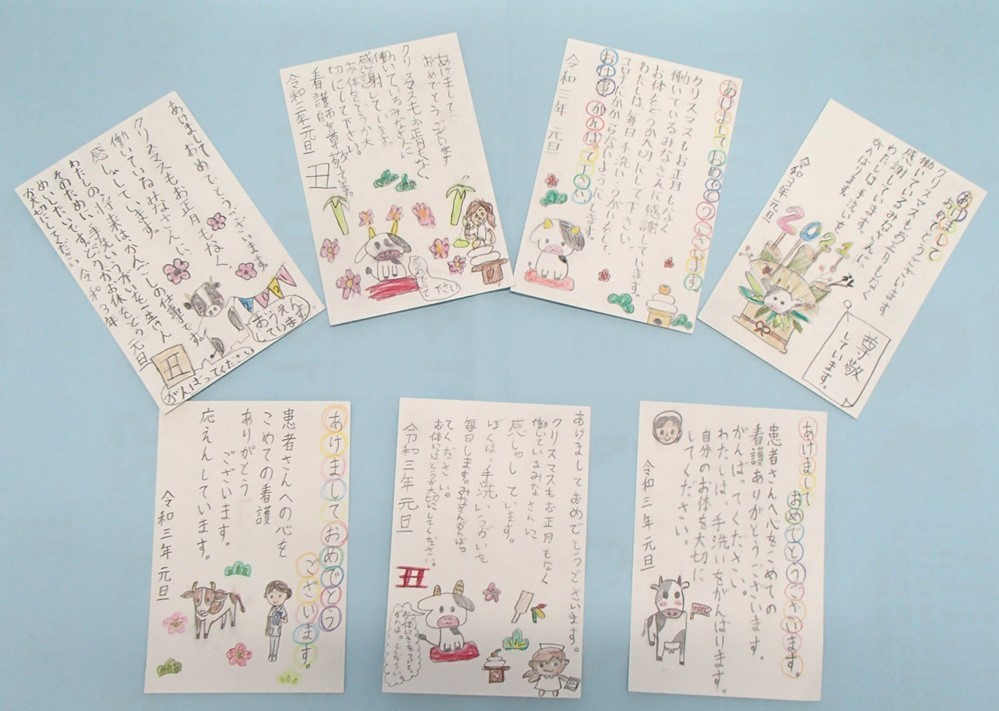 あけましておめでとうございます。
クリスマスもお正月もなく
働いているみなさんに
感しゃしています。
わたしの、将来はかんごしの仕事です。
令和3年 元旦
おうえん
しています
丑
がんばってください
あけまして
おめでとうございます
クリスマスもお正月もなく
働いているみなさんに
感謝しています。
お体をどうか大
切にして下さい。
看護師を尊敬
令和三年 元旦
丑
あけましておめでとうございます
クリスマスもお正月もなく
働いているみなさんに感謝しています。
お体をどうか大切にして下さい。
わたしは毎日手洗いうがいをして
コロナにかからないように
お仕事がんばって下さい
令和三年 元旦
あけまして
おめでとうございます
クリスマスもお正月もなく
働いているみなさんに
感謝しています。
わたしは手洗いを
がんばります。
令和3年元旦
2021
尊敬
しています。
あけましておめでとう
ございます。
患者さんへの心を
こめての看護
ありがとう
ございます。
応えんしています。
令和三年 元旦
あけましておめでとうございます。
クリスマスもお正月もなく
働いているみなさんに
感しゃしています。
ぼくは、手洗いうがいを
毎日します。みなさんがんばっ
てください。
お体にはどうか大切にしてください。
令和三年 元旦
丑
あけまして
おめでとうございます。
患者さんへ心をこめての
看護ありがとうございます。
がんばってください。
わたしは、手洗いをがんばります。
自分のお体を大切に
してください。
令和三年 元旦